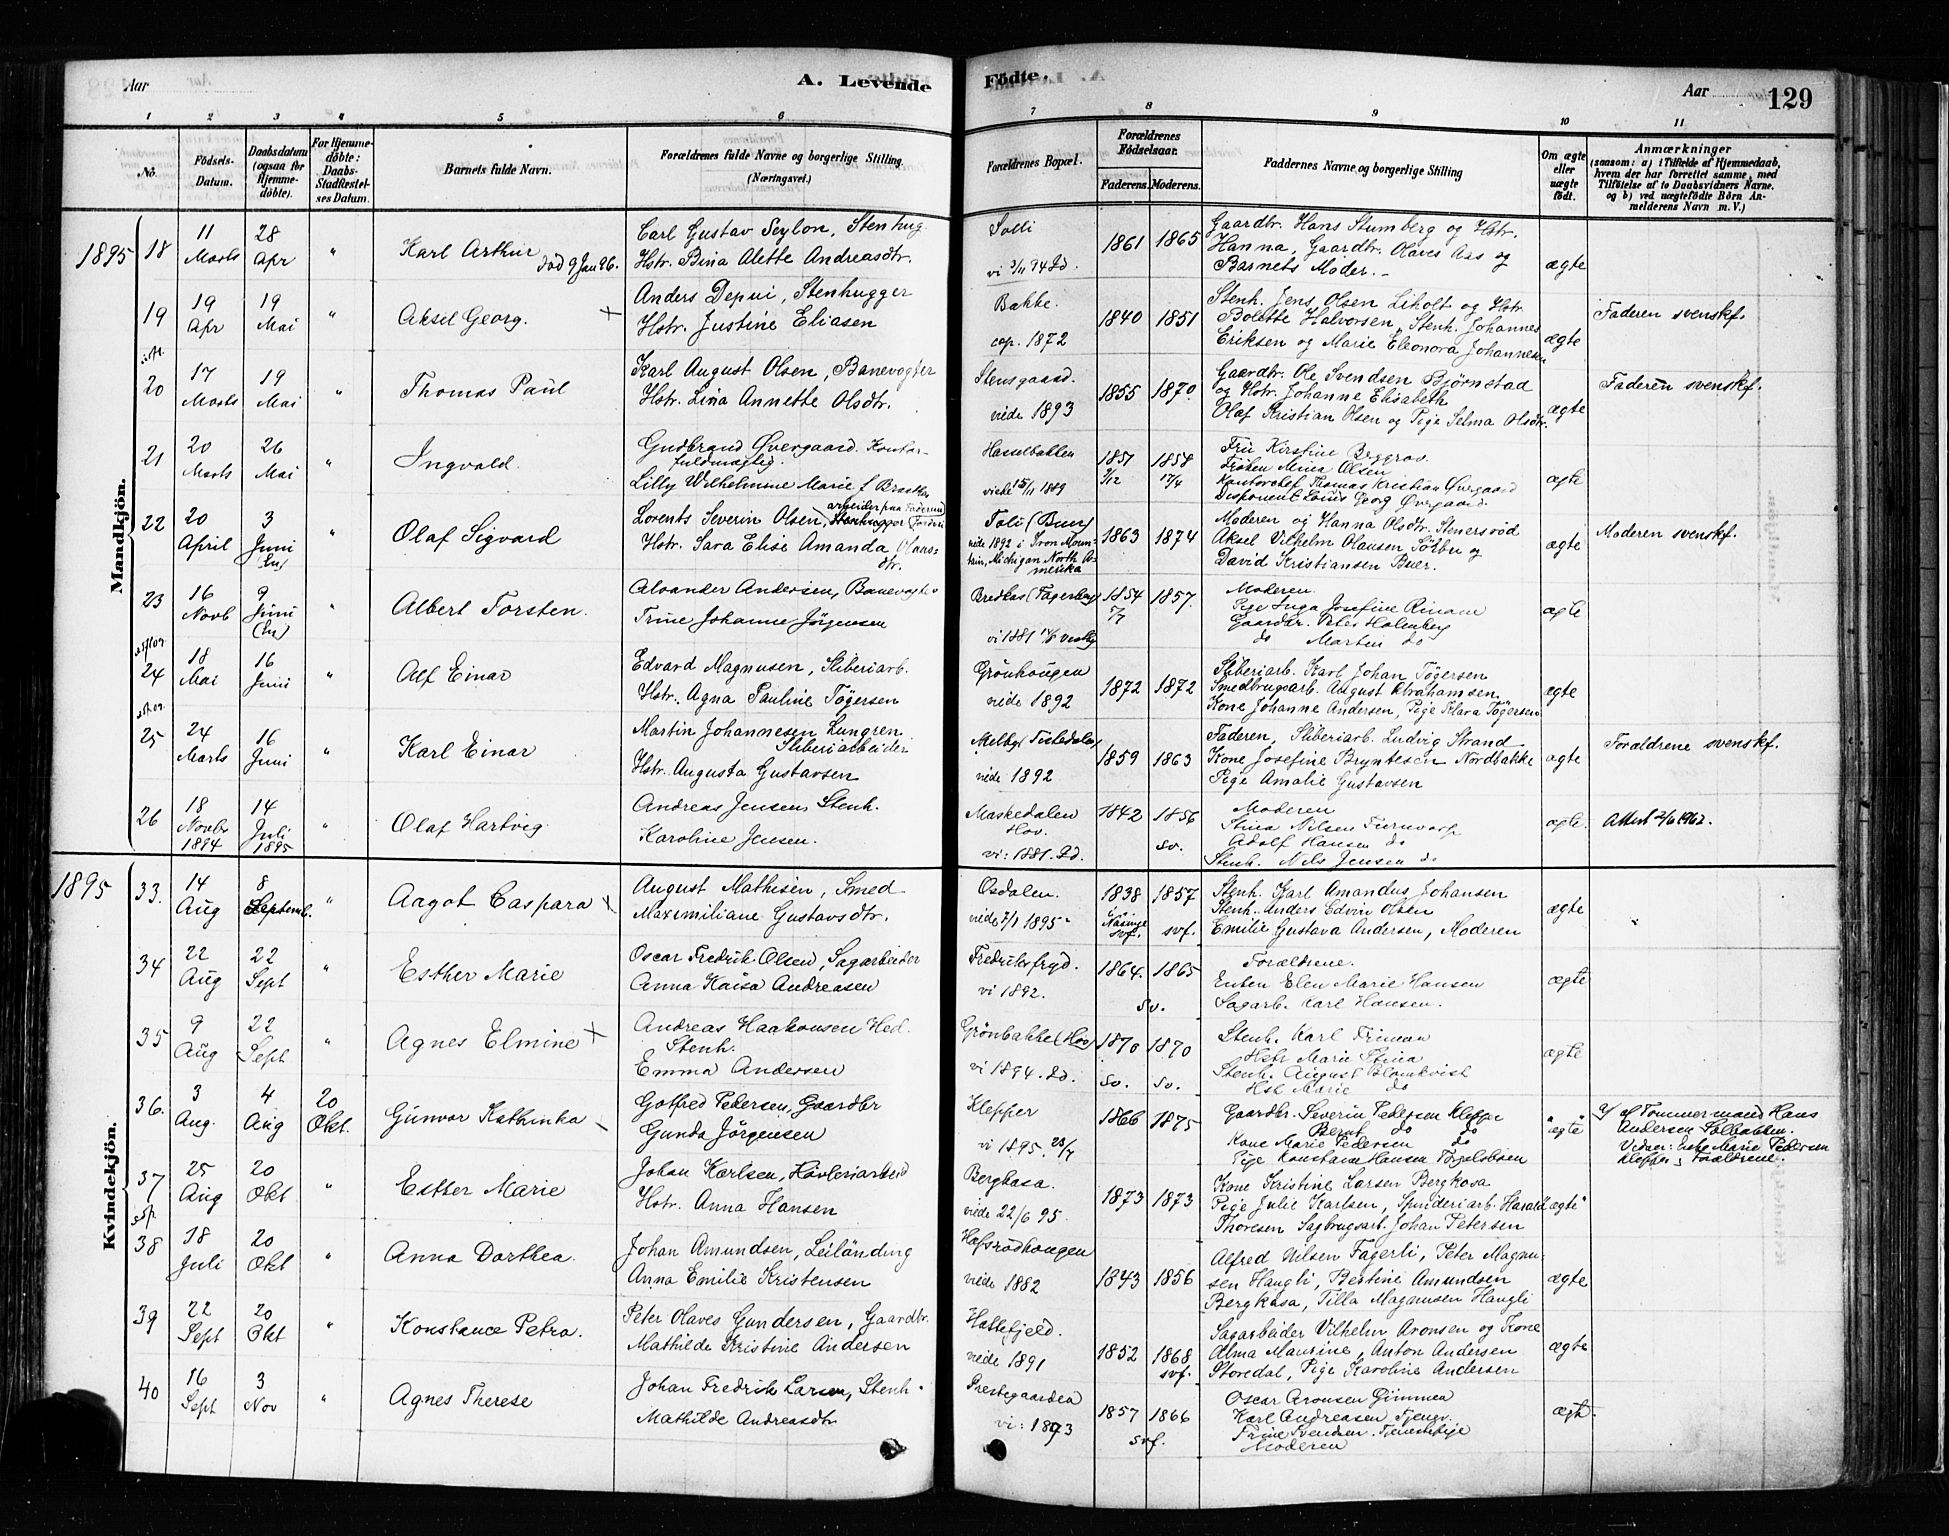 Aar
A. Levende
Födte.
Aar
129
1 2 3 4 5 6 7 8 9 10 11
No.
Födsels-Datum.
Daabsdatum (ogsaa for Hjemme-döbte).
For Hjemme-döbte: Daabs-Stadfæstel-ses Datum.
Barnets fulde Navn.
Forældrenes fulde Navne og borgerlige Stilling
(Næringsvei.)
Forældrenes Bopæl.
Forældrenes Födselsaar.
Faderens. Moderens.
Faddernes Navne og borgerlige Stilling
Om ægte eller uægte födt.
Anmærkninger
(saasom: a) i Tilfælde af Hjemmedaab, hvem der har forrettet samme, med Tilföielse af to Daabsvidners Navne. og b) ved uægtefödte Börn An-melderens Navn m. V.)
Mandkjön.
1895
18
11 Marts
28 Apr
"
Karl Arthur
död 9 Jan 26.
Carl Gustav Seylon, Stenhug.
Hstr. Bina Alette Andreasdtr.
Solli
vi 3/11 94 Id.
1861
1865
Gaardbr. Hans Stumberg og Hstr.
Hanna, Gaardbr. Olaves Aas og
Barnets Moder.-
ægte
19
19 Apr
19 Mai
"
Aksel Georg.
Anders Depui, Stenhugger
Hstr. Justine Eliasen
Bakke.
cop. 1872
1840
1851
Stenh. Jens Olsen Liholt og Hstr.
Bolette Halvorsen, Stenh. Johannes
Eriksen og Marie Eleonora Johannesen
ægte
Faderen svenskf.
20
17 Marts
19 Mai
"
Thomas Paul
Karl August Olsen, Banevogter
Hstr. Lina Annette Olsdtr.
Stensgaard.
viede 1893
1855
1870
Gaardbr. Ole Svendsen Björnstad
og Hstr. Johanne Elisabeth
Olaf Kristian Olsen og Pige Selma Olsdtr.
ægte
Faderen svenskf.
21
20 Marts
26 Mai
"
Ingvald.
Gudbrand Övergaard. Kontor-
fuldmægtig.
Lilly Wilhelmine Marie f.
Hasselbakken
viede 15/11 1889
1851
1858
17/4
Fru Kirstine Beggrov
Fröken Mina Olsen
Kontorchef Thomas Kristian Övergaard
Disponent Louis Georg Övergaard.
ægte
22
20 April
3 Juni
"
Olaf Sigvard
Lorents Severin Olsen,
Hstr. Sara Elise Amanda Olaus-
dtr.
viede 1892 i Iron Moun-
tain, Michigan North A-
merika
1863
1874
Moderen og Hanna Olsdtr. Stenersröd
Aksel Vilhelm Olausen Sörbu og
David Kristiansen Buer.
ægte
Moderen svenskf.
23
16 Novb
9 Juni
"
Albert Torsten.
Alexander Andersen, Banevogter
Trine Johanne Jörgensen
1854
1857.
Moderen.
Pige Inga Josefine
Gaardbr. Peter Holmberg
do Martin do
ægte
24
18 Mai
16 Juni
"
Alf Einar
Edvard Magnusen, Sliberiarb.
Hstr. Agna Pauline Tögersen
Grönhougen
viede 1892
1872
1872
Sliberiarb. Karl Johan Tögersen
Smedbrugsarb. August Abrahamsen
Kone Johanne Andersen, Pige Klara Tögersen
ægte
25
24 Marts
16 Juni
"
Karl Einar
Martin Johannesen Lungren.
Sliberiarbeider
Hstr. Augusta Gustavsen
Melby (Tistedalen)
viede 1892
1859
1863
Faderen, Sliberiarb. Ludvig Strand
Kone Josefine Bryntesen Nordbakke
Pige Amalie Gustavsen
ægte
Forældrene svenskf.
26
18 Novbr 1894
14 Juli 1895
"
Olaf Hartvig
Andreas Jensen, Stenh.
Karoline Jensen.
Maskedalen
Hov.
vi: 1881. Id.
1842
1856
sv.
Moderen
Stina Nilsen
Adolf Hansen do
Stenh. Nils Jensen do
ægte.
Attest 2/6 1962.
Kvindekjön.
1895
33.
14 Aug
8 Septemb.
"
Aagot Caspara
August Mathisen, Smed
Maximiliane Gustavsdtr.
Osdalen.
viede 7/1 1895
1838
svf.
1857
svf.
Stenh. Karl Amandus Johansen
Stenh. Anders Edvin Olsen
Emilie Gustava Andersen, Moderen
ægte
34
22 Aug
22 Sept
"
Esther Marie
Oscar Fredrik Olsen, Sagarbeider
Anna Kaisa Andreasen
Fredriksfryd.
vi 1892.
1864.
1865
sv.
Forældrene.
Enken Elen Marie Hansen
Sagarb. Karl Hansen.
ægte
35
9 Aug
22 Sept
"
Agnes Elmine
Andreas Haakonsen Hed.
Stenh.
Emma Andersen
Grönbakke (Hov)
vi 1894. Id.
1870
sv.
1870
sv.
Stenh. Karl Friman
Hstr Marie Stina
Stenh. August Blomkvist
Hst Marie do
ægte
36.
3 Aug.
4 Aug
20 Okt.
Gunvor Kathinka
Gotfred Pedersen, Gaardbr
Gunda Jörgensen
Klepper
vi 1895. 25/7
1866
1875
Gaardbr. Severin Pedersen Kleppe
Bernt do do
Kone Marie Pedersen do
Pige Konstance Hansen
"ægte"
a/ af Tömmermand Hans
Andersen Solbakken.
Vidner: Enke Marie Pedersen
Klepper, Forældrene.
37
25 Aug
20 Okt
"
Esther Marie
Johan Karlsen, Hövleriarbeid
Hstr. Anna Hansen
Bergkasa.
viede 22/6 95.
1873
1873
Kone Kristine Larsen Bergkasa
Pige Julie Karlsen, Spinderiarb. Harald
Thoresen Sagbrugsarb. Johan Petersen
ægte"
38
18 Juli
20 Okt
"
Anna Dorthea.
Johan Amundsen, Leilænding
Anna Emilie Kristensen
Hafsrödhougen
viede 1882
1843
1856
Alfred Nilsen Fagerli, Peter Magnu-
sen Haugli, Bestine Amundsen
Bergkasa, Tilla Magnusen Haugli
ægte
39
22 Sept
20 Okt
"
Konstance Petra.
Peter Olaves Gundersen, Gaardbr.
Mathilde Kristine Andersen
Hattefjeld.
viede 1891
1852
1868
svf.
Sagarbeider Vilhelm Aronsen og Kone
Alma Maurine, Anton Andersen
Storedal, Pige Karoline Andersen
ægte
40
16 Sept
3 Nov
"
Agnes Therese
Johan Fredrik Larsen, Stenh.
Mathilde Andreasdtr
Prestegaarden
vi: 1893
1857
1866
svf.
Oscar Aronsen Gimmen
Karl Andreasen
Trine Svendsen. Tjenestepige
Moderen
ægte.